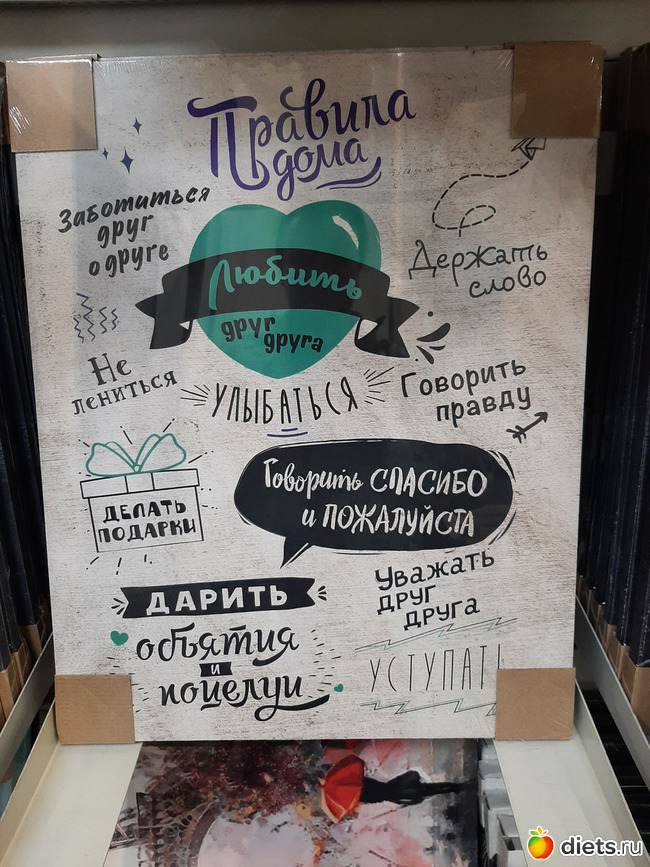 Правила
дома
Заботиться
друг
о друге
Любить
друг
друга
Держать
слово
Не
лениться
УЛЫБАТЬСЯ
Говорить
правду
ДЕЛАТЬ
ПОДАРКИ
Говорить СПАСИБО
и ПОЖАЛУЙСТА
Уважать
друг
друга
ДАРИТЬ
объятия
и
поцелуи
УСТУПАТЬ
diets.ru